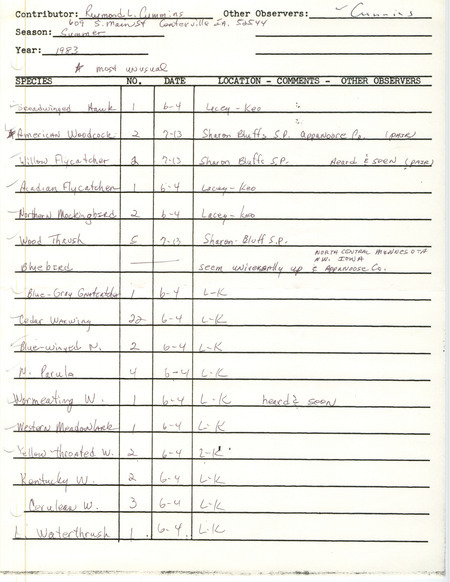 Contributor: Raymond L. Cummins Other Observers: Cummins
609 S. Main St Centerville IA. 52544
Season: Summer
Year: 1983
* most unusual
SPECIES NO. DATE LOCATION - COMMENTS - OTHER OBSERVERS
Broadwinged Hawk 1 6-4 Lacey-Keo
* American Woodcock 2 7-13 Sharon Bluffs S.P. Appanoose Co. (pair)
Willow Flycatcher 2 7-13 Sharon Bluffs S.P. Heard & seen (pair)
Acadian Flycatcher 1 6-4 Lacey-Keo
Northern Mockingbird 2 6-4 Lacey-Keo
Wood Thrush 5 7-13 Sharon-Bluff S.P.
North Central Minnesota
N.W. Iowa
Bluebird — seem universally up & Appanoose Co.
Blue-Gray Gnatcatcher 1 6-4 L-K
Cedar Waxwing 22 6-4 L-K
Blue-winged W. 2 6-4 L-K
N. Parula 4 6-4 L-K
Wormeating W. 1 6-4 L-K heard & seen
Western Meadowlark 1 6-4 L-K
Yellow-throated W. 2 6-4 L-K
Kentucky W. 2 6-4 L-K
Cerulean W. 3 6-4 L-K
L. Waterthrush 1 6-4 L-K